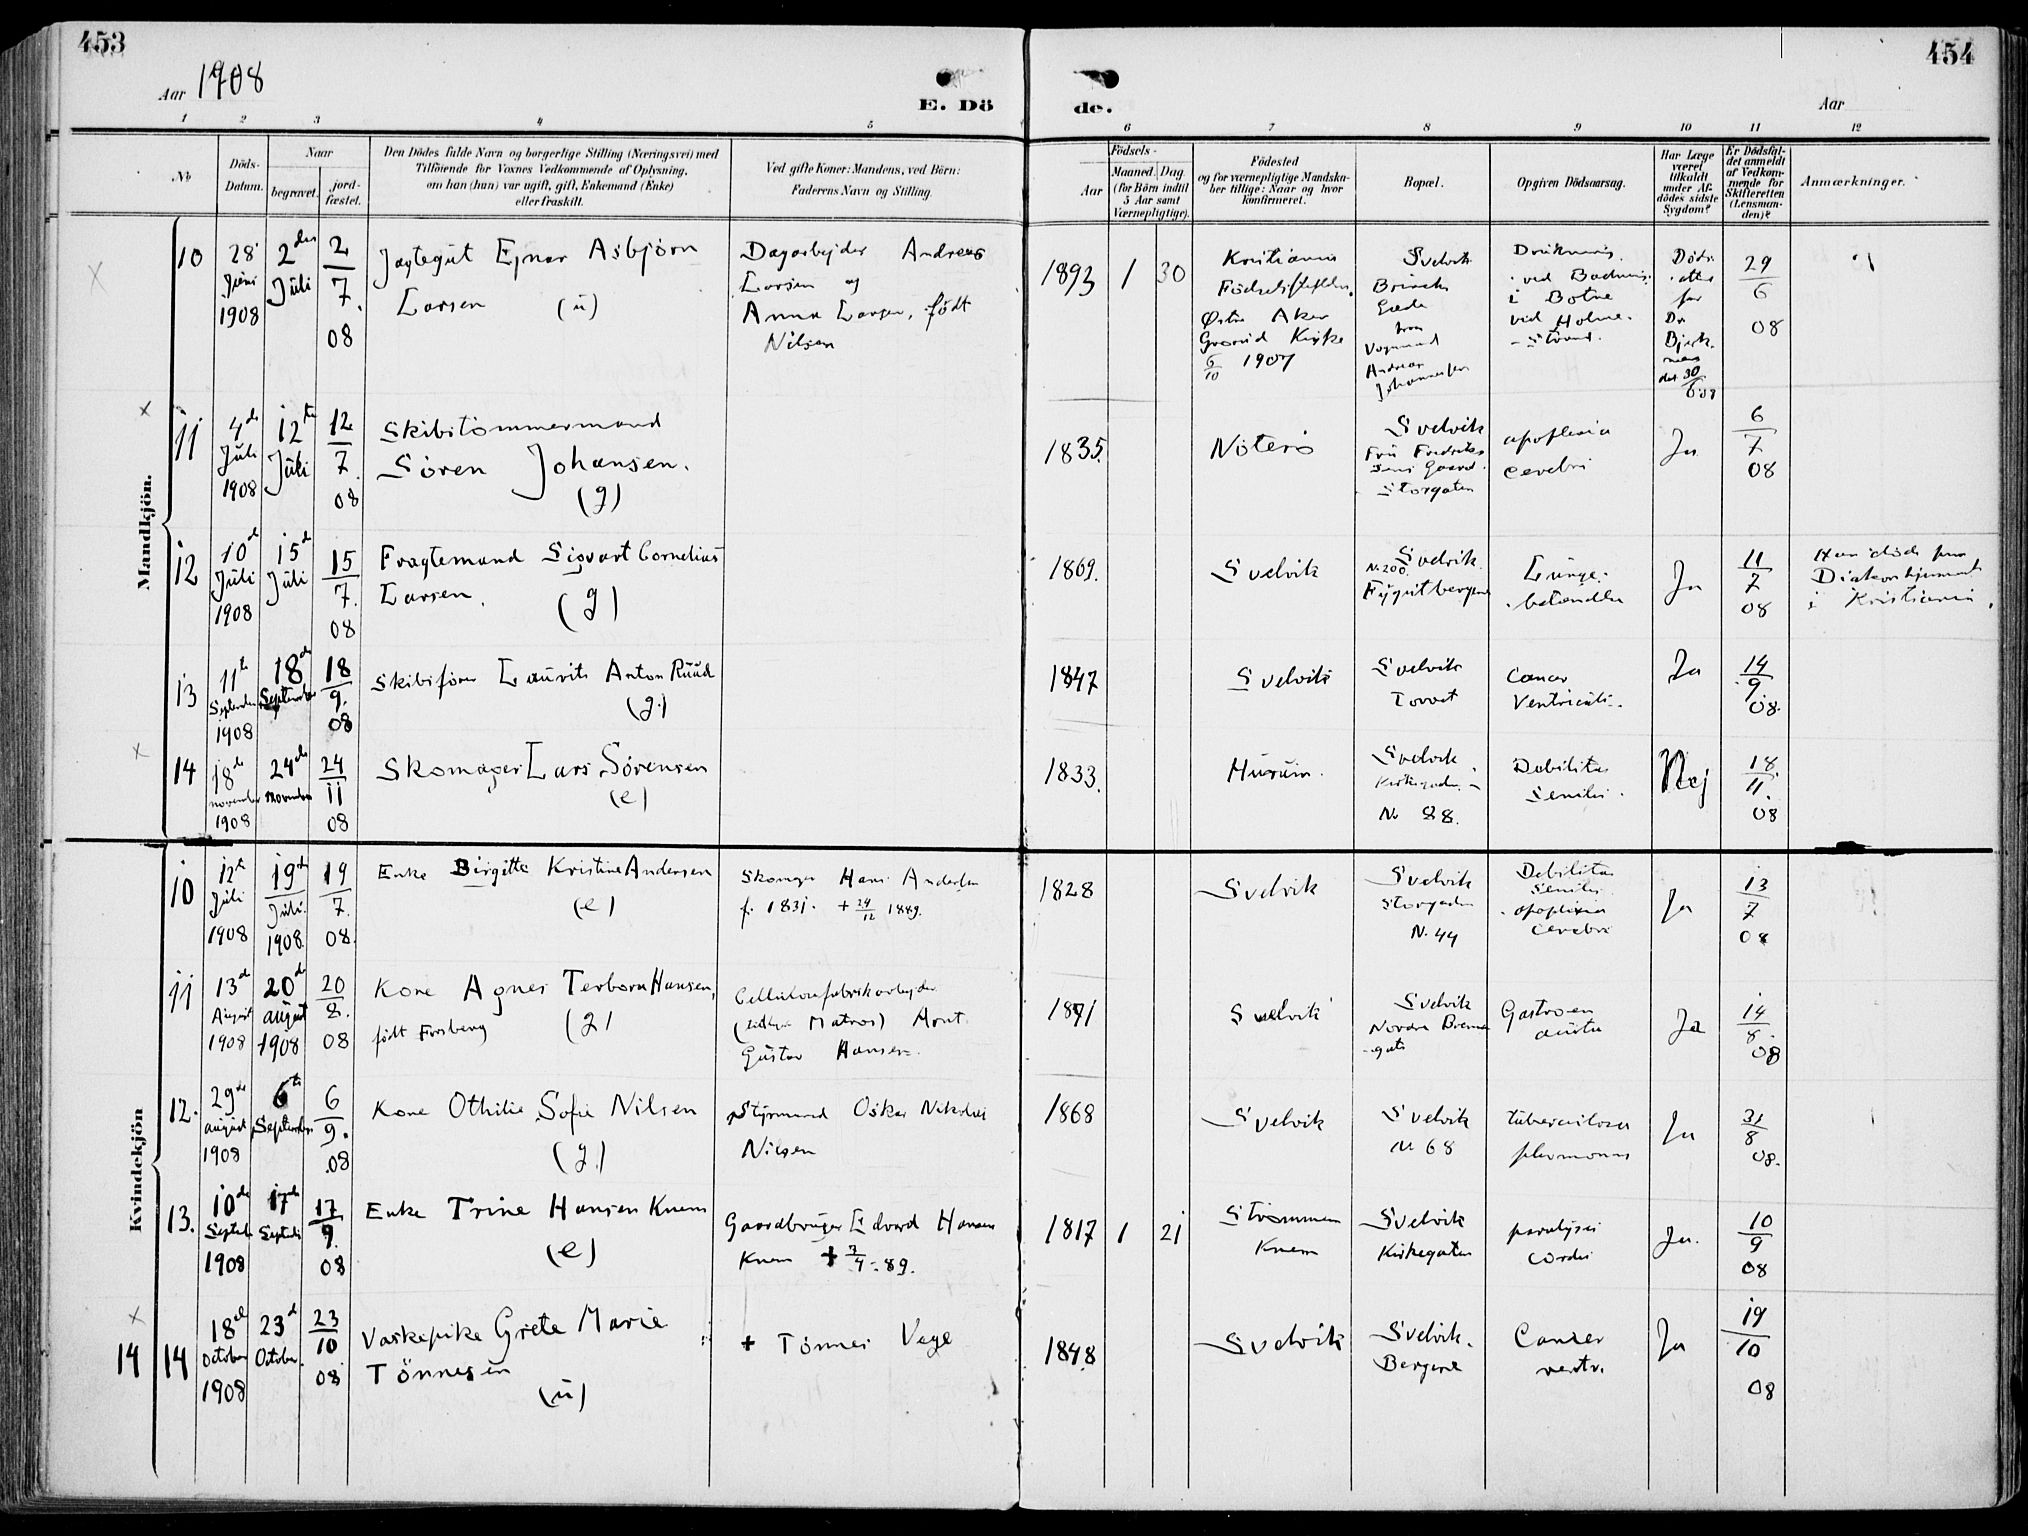 453
454
Aar 1908
E. Dö
de.
Aar
1 2 3 4 5 6 7 8 9 10 11 12
No
Döds-
Datum.
Naar
begravet.
jord-
fæstet.
Den Dödes fulde Navn og borgerlige Stilling (Næringsvei) med
Tilföiende for Voxnes Vedkommende af Oplysning,
om han (hun) var ugift, gift, Enkemand (Enke)
eller fraskilt.
Ved gifte Koner: Mandens, ved Börn:
Faderens Navn og Stilling.
Födsels-
Aar
Maaned.
Dag.
(for Börn indtil
5 Aar samt
Værnepligtige).
Födested
og for værnepligtige Mandska-
ber tillige: Naar og hvor
konfirmeret.
Bopæl.
Opgiven Dödsaarsag.
Har Læge
været
tilkaldt
under Af-
dödes sidste
Sygdom?
Er Dödsfal-
det anmeldt
af Vedkom-
mende for
Skifteretten
(Lensman-
den)?
Anmærkninger.
Mandkjön.
10
28
Juni
1908
2den
Juli
2
7.
08
Jagtegut Ejnar Asbjörn
Larsen (u)
Dagarbejder Andreas
Larsen og
Anna Larsen, født
Nilsen
1893 1 30
Kristiania
Østre Aker
Grorud Kirke
6/10 1907
Svelvik
Andreas
Johannessen
ved
i Botne
ved Holme-
-strand.
for
Dr.
Bjerk-
nes
30
6 08
29
6
08
11
4de
Juli
1908
12te
Juli
12
7.
08
Skibstömmermand
Sören Johansen.
(g)
1835.
Nöterö
Svelvik
Fru Fredriks
Gaard.
Storgaten
apoplexia
cerebri
Ja
6
7
08
12
10d
Juli
1908
15d
Juli
15
7.
08
Fragtemand Sigvart Cornelius
Larsen.
(g)
1869.
Svelvik
Svelvik.
N. 200.
Lunge-
betændelse
Ja
11
7
08
Han døde paa
Diakonhjemmet
i Kristiania.
13
11te
September
1908
18de
September
18
9.
08
Skibsförer Laurits Anton Ruud
(g.)
1847
Svelvik
Svelvik
Torvet
Cancer
Ventriculi.
Ja
14
9.
08.
14
18de
November
1908
24de
November
24
11
08
Skomager Lars Sörensen
(e)
1833.
Hurum.
Svelvik.
Kirkegaden
No 88.
Debilitas
Senilis.
Nej
18.
11.
08
Kvindekjön
10
12te
Juli
1908
19de
Juli.
1908.
19
7.
08.
Enke Birgitte Kristine Andersen
(e)
Skomager Hans Andersen
f. 1831. + 29/12 1889.
1828
Svelvik
Svelvik
Storgaden
N. 44
Debilitas
Senilis.
apoplexia
cerebri
Ja
13
7
08
11
13d
August
1908
20d
August
1908
20
8.
08
Kone Agnes Terbora Hansen,
født Forsberg (g)
Cellulosefabrikarbejder
(tidligere Matros)
Gustav Hansen.
1871
Svelvik
Svelvik
Nordre Brenne
-gate
Gastroen
Ja
14
8.
08
12.
29de
August
1908
6te
September.
6
9.
08
Kone Othilie Sofie Nilsen
(g.)
Styrmand Oskar Nikolai
Nilsen
1868
Svelvik
Svelvik
No 68
tuberculosa
pulmonum
Ja
31
8
08.
13.
10de
Septemb
1908
17de
Septemb
17
9.
08
Enke Trine Hansen Knem
(e)
Gaardbruger Edvard Hansen
Knem + 3/4 - 89.
1817 1 21
Strömmen
Knem
Svelvik
Kirkegaten
paralysis
cordis
Ja.
10
9
08
14 14
18de
October
1908
23d
October.
23
10
08
Vaskepike Grete Marie
Tönnesen
(u)
+ Tönnes Vege
1848
Svelvik
Svelvik.
Bergene
Cancer
ventr.
Ja
19
10
08